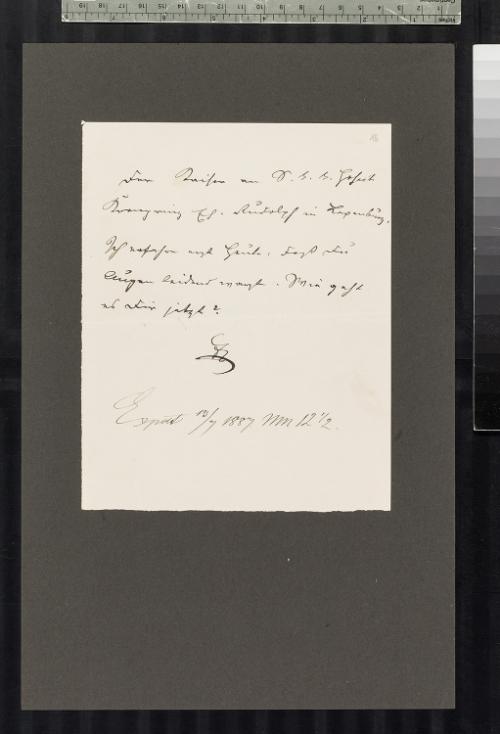 16
Der Kaiser an S. k. k. Hoheit
Kronprinz Eh. Rudolph in Laxenburg.
Ich erfahre erst heute, daß Du
Augen leidend warst. Wie geht
es Dir jetzt?
Exped 13/7 1887 NM 12 1/2.